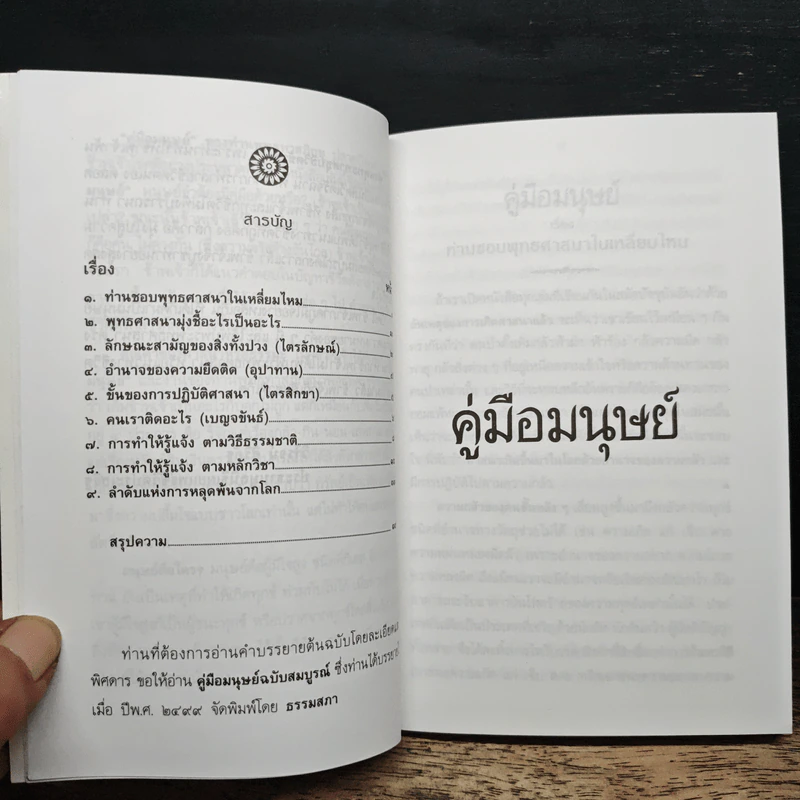 สารบัญ
เรื่อง
๑. ท่านชอบพุทธศาสนาในเหลี่ยมไหม
๒. พุทธศาสนามุ่งชี้อะไรเป็นอะไร
๓. ลักษณะสามัญของสิ่งทั้งปวง (ไตรลักษณ์)
๔. อำนาจของความยึดติด (อุปาทาน)
๕. ขั้นของการปฏิบัติศาสนา (ไตรสิกขา)
๖. คนเราติดอะไร (เบญจขันธ์)
๗. การทำให้รู้แจ้ง ตามวิธีธรรมชาติ
๘. การทำให้รู้แจ้ง ตามหลักวิชา
๙. ลำดับแห่งการหลุดพ้นจากโลก
สรุปความ
ท่านที่ต้องการอ่านคำบรรยายต้นฉบับโดยละเอียด
พิศดาร ขอให้อ่าน คู่มือมนุษย์ฉบับสมบูรณ์ ซึ่งท่านได้บรรยาย
เมื่อ ปีพ.ศ. ๒๔๙๙ จัดพิมพ์โดย ธรรมสภา
คู่มือมนุษย์